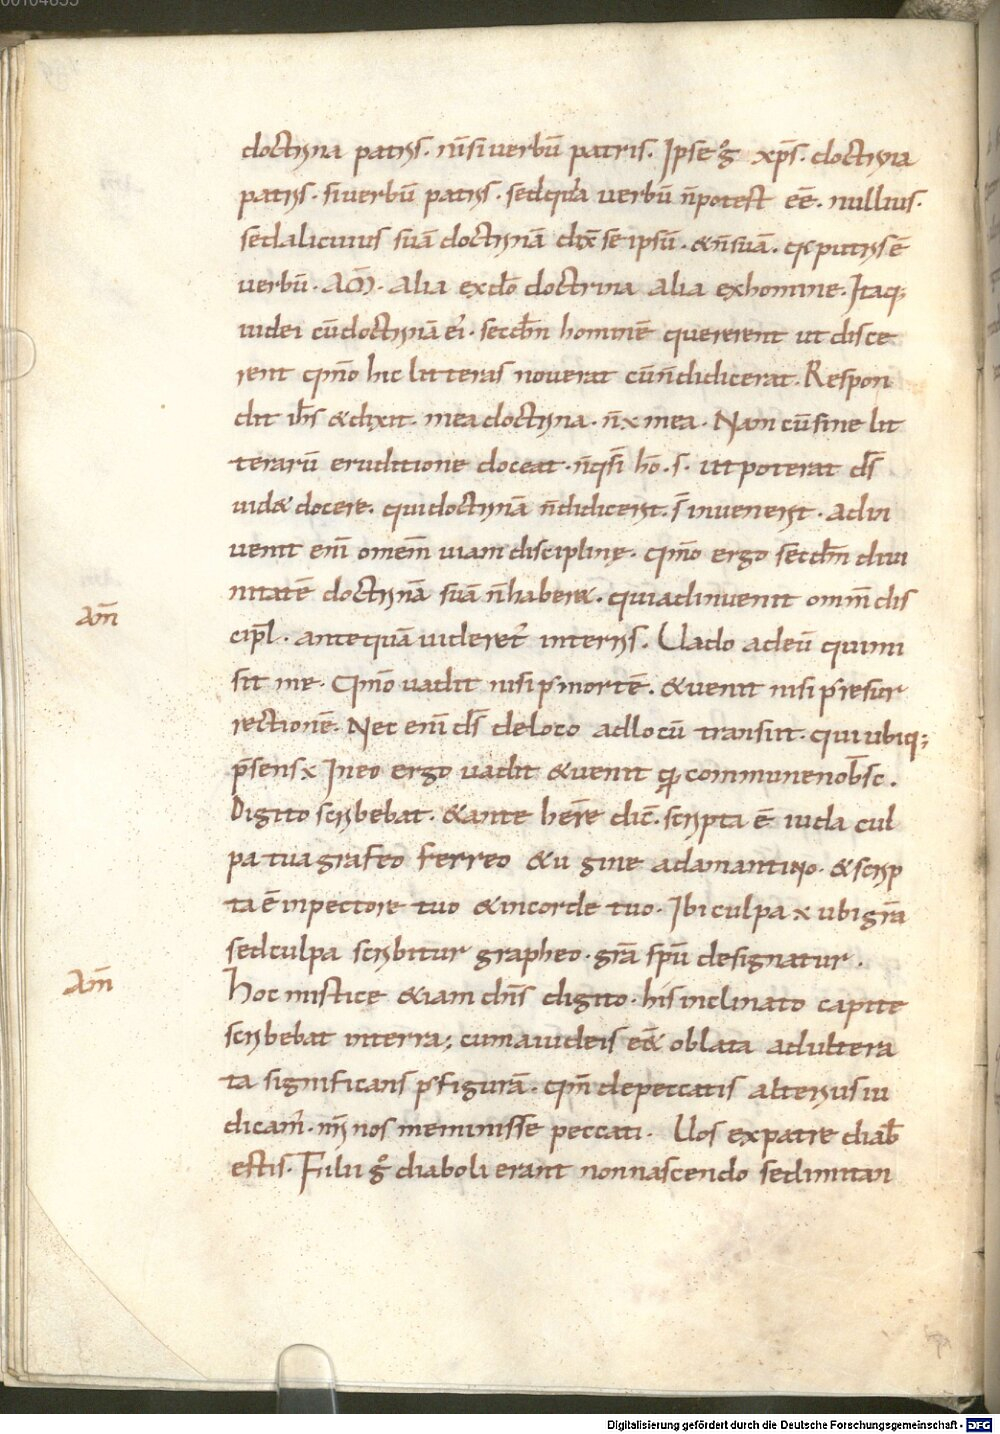 00104855
doctrina patris. n̄ siuerbū patris. Ipse g̊ xp̄s. doctrina
patris. siuerbū patris. sedquia uerbū n̄potest eē. nullius.
sedalicuius suā doctrinā dix̄ seipsū. &n̄suā. q̄ patris ē
uerbū. AM̄. Alia exdō doctrina alia exhomine. Itaq;
iudei cū doctrinā ei. secdm̄ hominē quererent ut disce
rent qm̄o hic litteras nouerat cūn̄didicerat. Respon
dit ih̄s &dixit. mea doctrina. n̄ x mea. Nam cū sine lit
terarū eruditione doceat. n̄ q̄si hō. s. ut poterat ds̄
uid& docere. qui doctrinā n̄didicerit. s̄ inuenerit. Adin
uenit eni omem̄ uiam disciplinę. qm̄o ergo secdm̄ diui
nitatē doctrinā suā n̄haber&. qui adinuenit omm̄ dis
Am̄
cipl̄. antequā uideret̄ interris. Uado adeū quimi
sit me. Qm̄o uadit nisi p̄ mortē. &uenit nisi p̄ resur
rectionē. Nec eni ds̄ deloco adlocū transiit. qui ubiq;
p̄sens x Ineo ergo uadit &uenit q̄ communenob̄sc.
Digito scribebat. &ante here dic̄. scripta ē iuda cul
pa tua grafeo ferreo &u gine adamantino. &scrip
ta ē inpectore tuo &incorde tuo. Ibi culpa x ubi gr̄a
sedculpa scribitur grapheo. gr̄a sp̄ū designatur.
Am̄
Hoc mistice &iam dn̄s digito. his inclinato capite
scribebat interra; cum a iudeis eē& oblata adultera
ta significans p̄ figurā. qm̄ depeccatis alterius iu
dicam̄. nr̄i nos meminisse peccati. Uos expatre diab̄
estis. Filii g̊ diaboli erant nonnascendo sedimitan
Digitalisierung gefördert durch die Deutsche Forschungsgemeinschaft - DFG